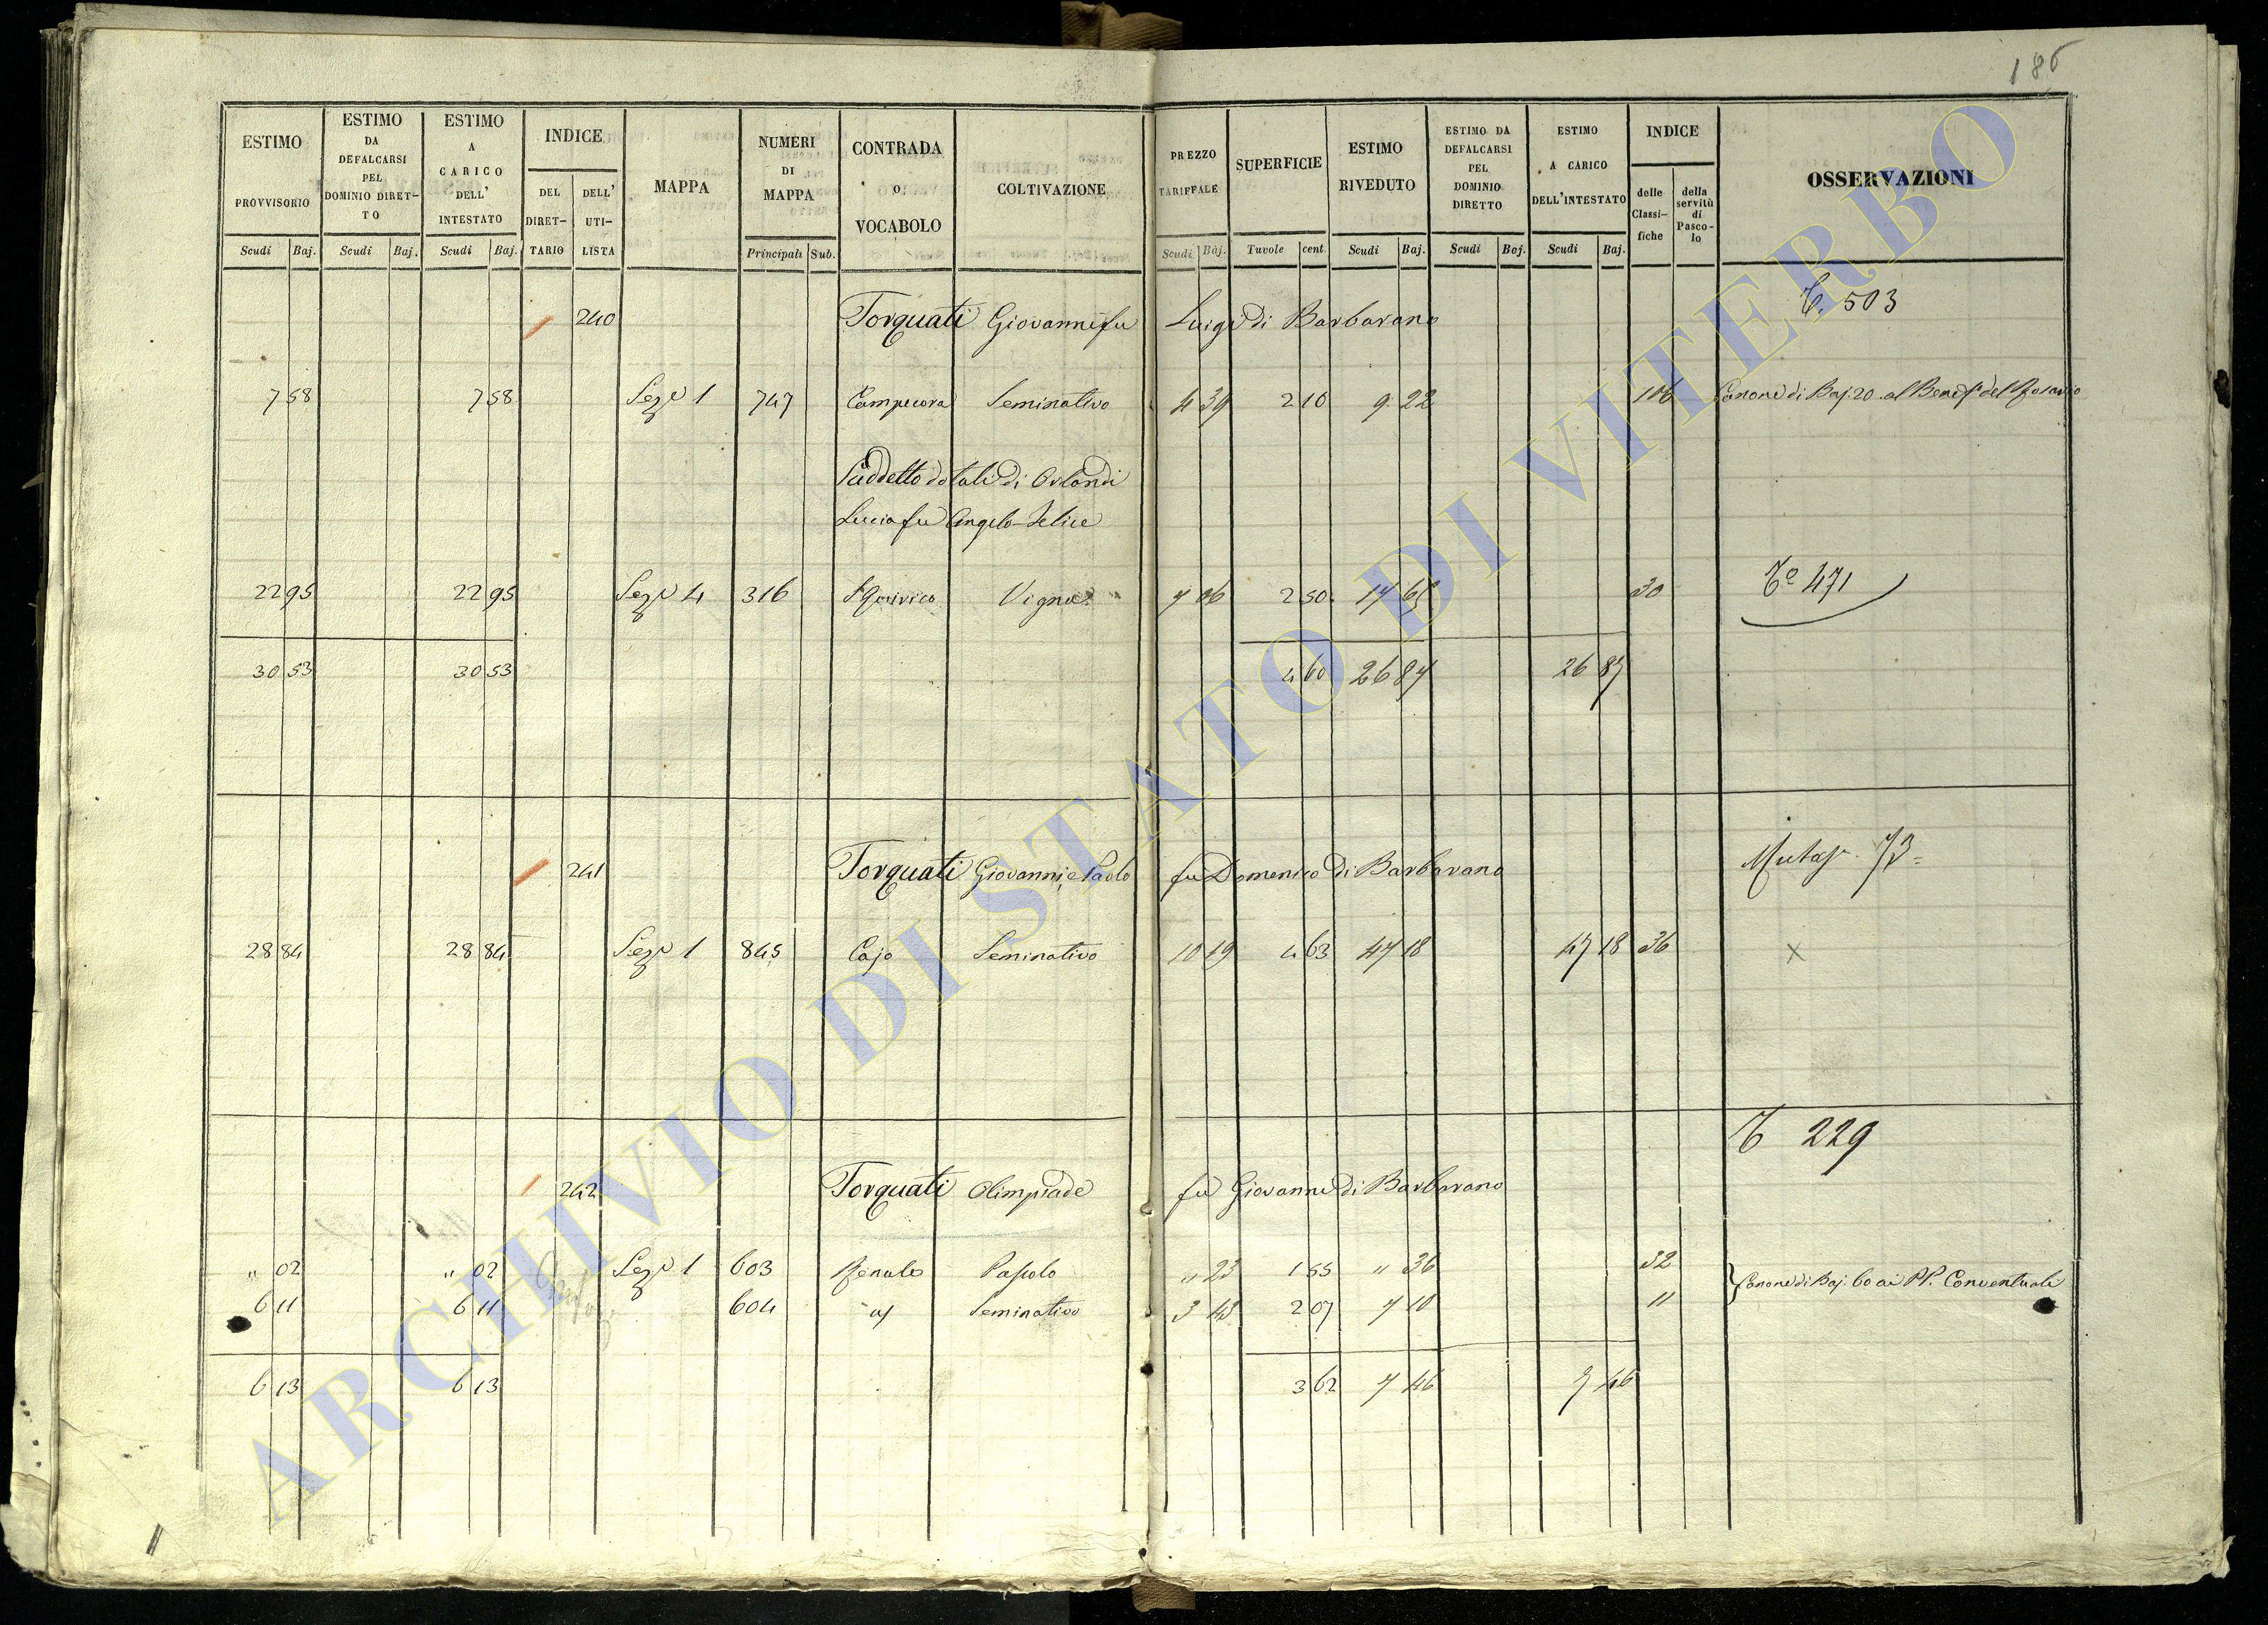 186
ESTIMO PROVVISORIO
ESTIMO DA DEFALCARSI PEL DOMINIO DIRET-TO
ESTIMO A CARICO DELL' INTESTATO
INDICE
DEL DIRET-TARIO
DELL' UTI-LISTA
MAPPA
NUMERI DI MAPPA
CONTRADA O VOCABOLO
COLTIVAZIONE
PREZZO TARIFFALE
SUPERFICIE
ESTIMO RIVEDUTO
ESTIMO DA DEFALCARSI PEL DOMINIO DIRETTO
ESTIMO A CARICO DELL'INTESTATO
INDICE
delle Classi-fiche
della servitù di Pasco-lo
OSSERVAZIONI
Scudi Baj. Scudi Baj. Scudi Baj. Principali Sub. Scudi Baj. Tavole cent. Scudi Baj. Scudi Baj. Scudi Baj.
240 Torquati Giovanni fu Luigi di Barbarano 503
7 58 7 58 Sez.e 1 747 Seminativo 4 39 2 10 9 22 106 Canone di Baj. 20 al Benef.o del Rosario
Suddetto dotali di Orlandi
Lucia fu Angelo Felice
22 95 22 95 Sez.e 4 316 S Quirico Vigna 7 06 2 50 17 65 30 471
30 53 30 53 4 60 26 87 26 87
241 Torquati Giovanni, e Paolo fu Domenico di Barbarano 73
28 84 28 84 Sez.e 1 845 Cajo Seminativo 10 19 4 63 47 18 47 18 36 X
229
242 Torquati Olimpiade fu Giovanni di Barbarano
" 02 " 02 Sez.e 1 603 Pascolo " 23 1 55 " 36 32 Canone di Baj. 60 ai PP. Conventuali
6 11 6 11 604 Seminativo 3 43 2 07 7 10 11
6 13 6 13 3 62 7 46 7 46
ARCHIVIO DI STATO DI VITERBO